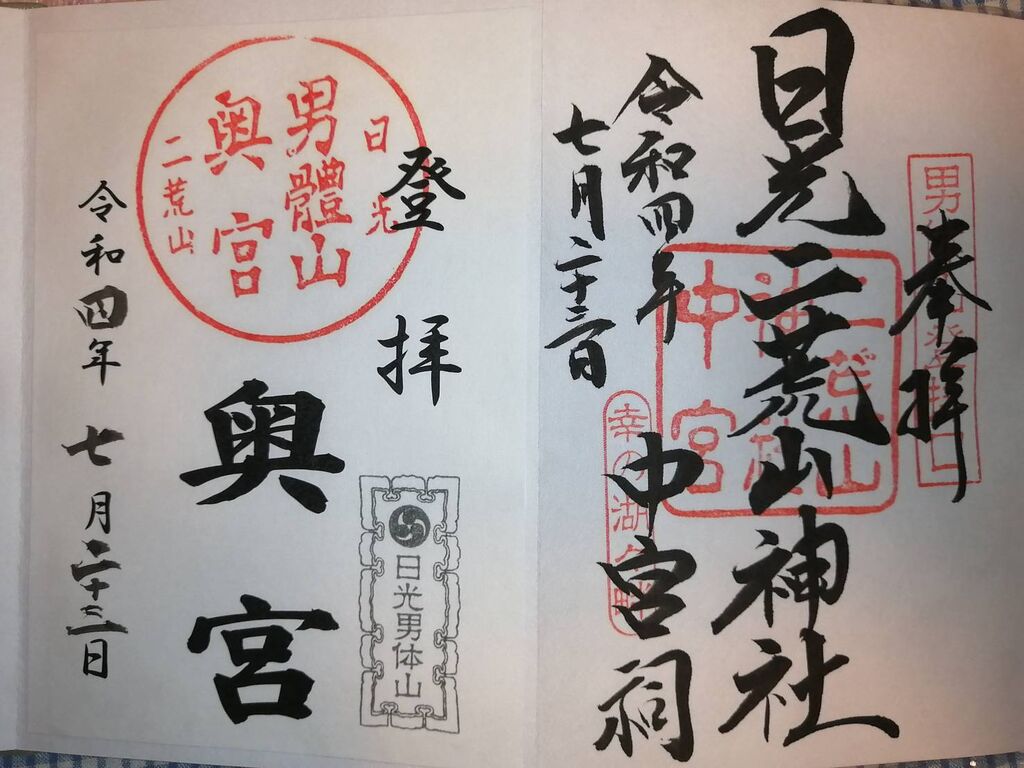 奉拝
日光二荒山神社
中宮祠
令和四年
七月二十三日
二荒山
神社
中宮
登拝
日光
男體山
奥宮
二荒山
奥宮
日光男体山
令和四年七月二十三日